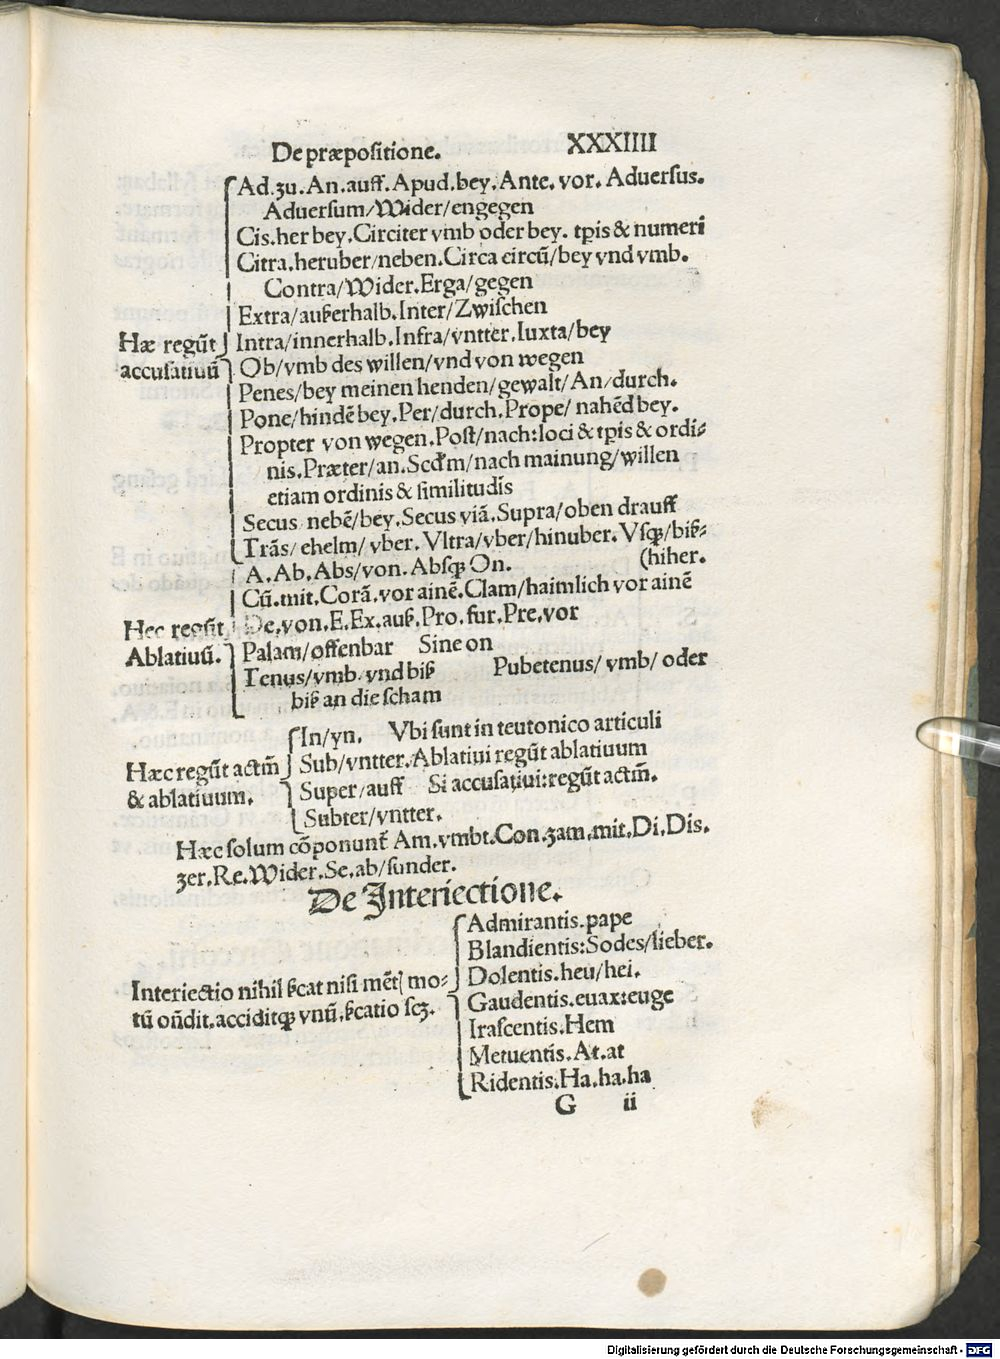 De præpositione. XXXIIII
Ad.zu.An.auff.Apud.bey.Ante.vor.Aduersus.
Aduersum/Wider/engegen
Cis.her bey.Circiter vmb oder bey. tp̄is & numeri
Citra.heruber/neben.Circa circū/bey vnd vmb.
Contra/Wider.Erga/gegen
Extra/auſserhalb.Inter/Zwiſchen
Hæ regūt Intra/innerhalb.Infra/vntter.Iuxta/bey
accuſatiuū Ob/vmb des willen/vnd von wegen
Penes/bey meinen henden/gewalt/An/durch.
Pone/hindē bey.Per/durch.Prope/ nahēd bey.
Propter von wegen.Poſt/nach:loci & tp̄is & ordi⸗
nis.Præter/an.Scd̄m/nach mainung/willen
etiam ordinis & ſimilitudīs
Secus nebē/bey.Secus viā.Supra/oben drauff
Trās/ ehelm/ vber. Vltra/vber/hinuber. Vſqꝫ/biß⸗
A.Ab.Abs/von.Abſqꝫ On. (hiher.
Cū.mit.Corā.vor ainē.Clam/haimlich vor ainē
Hec regūt De.von.E.Ex.auß.Pro.fur.Pre.vor
Ablatiuū. Palam/offenbar Sine on
Tenus/vmb vnd biß Pubetenus/ vmb/ oder
biß an die ſcham
In/yn. Vbi ſunt in teutonico articuli
Hæc regūt actm̄ Sub/vntter.Ablatiui regūt ablatiuum
& ablatiuum. Super/auff Si accuſatiui:regūt actm̄.
Subter/vntter.
Hæc ſolum cōponunt̄ Am.vmbt.Con.zam.mit.Di.Dis.
zer.Re.Wider.Se.ab/ſunder.
De Interiectione.
Admirantis.pape
Blandientis:Sodes/lieber.
Dolentis.heu/hei.
Interiectio nihil ſc̄at niſi mēt mo⸗
Gaudentis.euax:euge
tū on̄dit.acciditqꝫ vnū.ſc̄atio ſcꝫ.
Iraſcentis.Hem
Metuentis.At.at
Ridentis.Ha.ha.ha
G ii
Digitalisierung gefördert durch die Deutsche Forschungsgemeinschaft - DFG